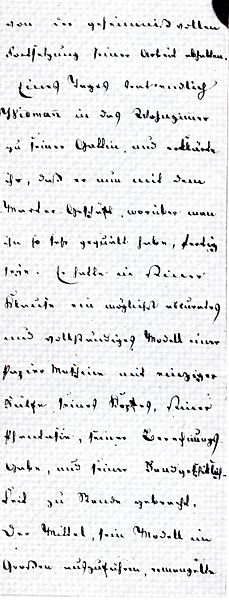 von der geheimnißvollen
Fortsetzung seiner Arbeit abhalten.
Eines Tages trat endlich
Wißmann in das Wohnzimmer
zu seiner Gattin, und erklärte
ihr, daß er nun mit dem
Marter-Geschäft, worüber man
ihn so sehr gequält habe, fertig
seye. Er hatte in seiner
Klause ein möglichst accurates
und vollständiges Modell einer
Papier Maschine mit einziger
Hülfe seines Kopfes, seiner
Phantasie, seiner Berechnungs
Gabe, und seiner Handgeschicklich-
keit zu Stande gebracht.
Der Mittel, sein Modell im
Großen auszuführen, ermangelte